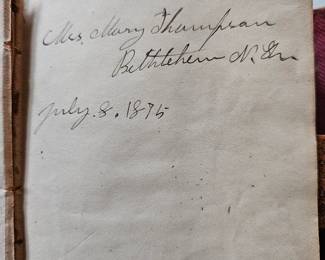 Mrs. Mary Thompson
Bethlehem N. H.
July. 8. 1875